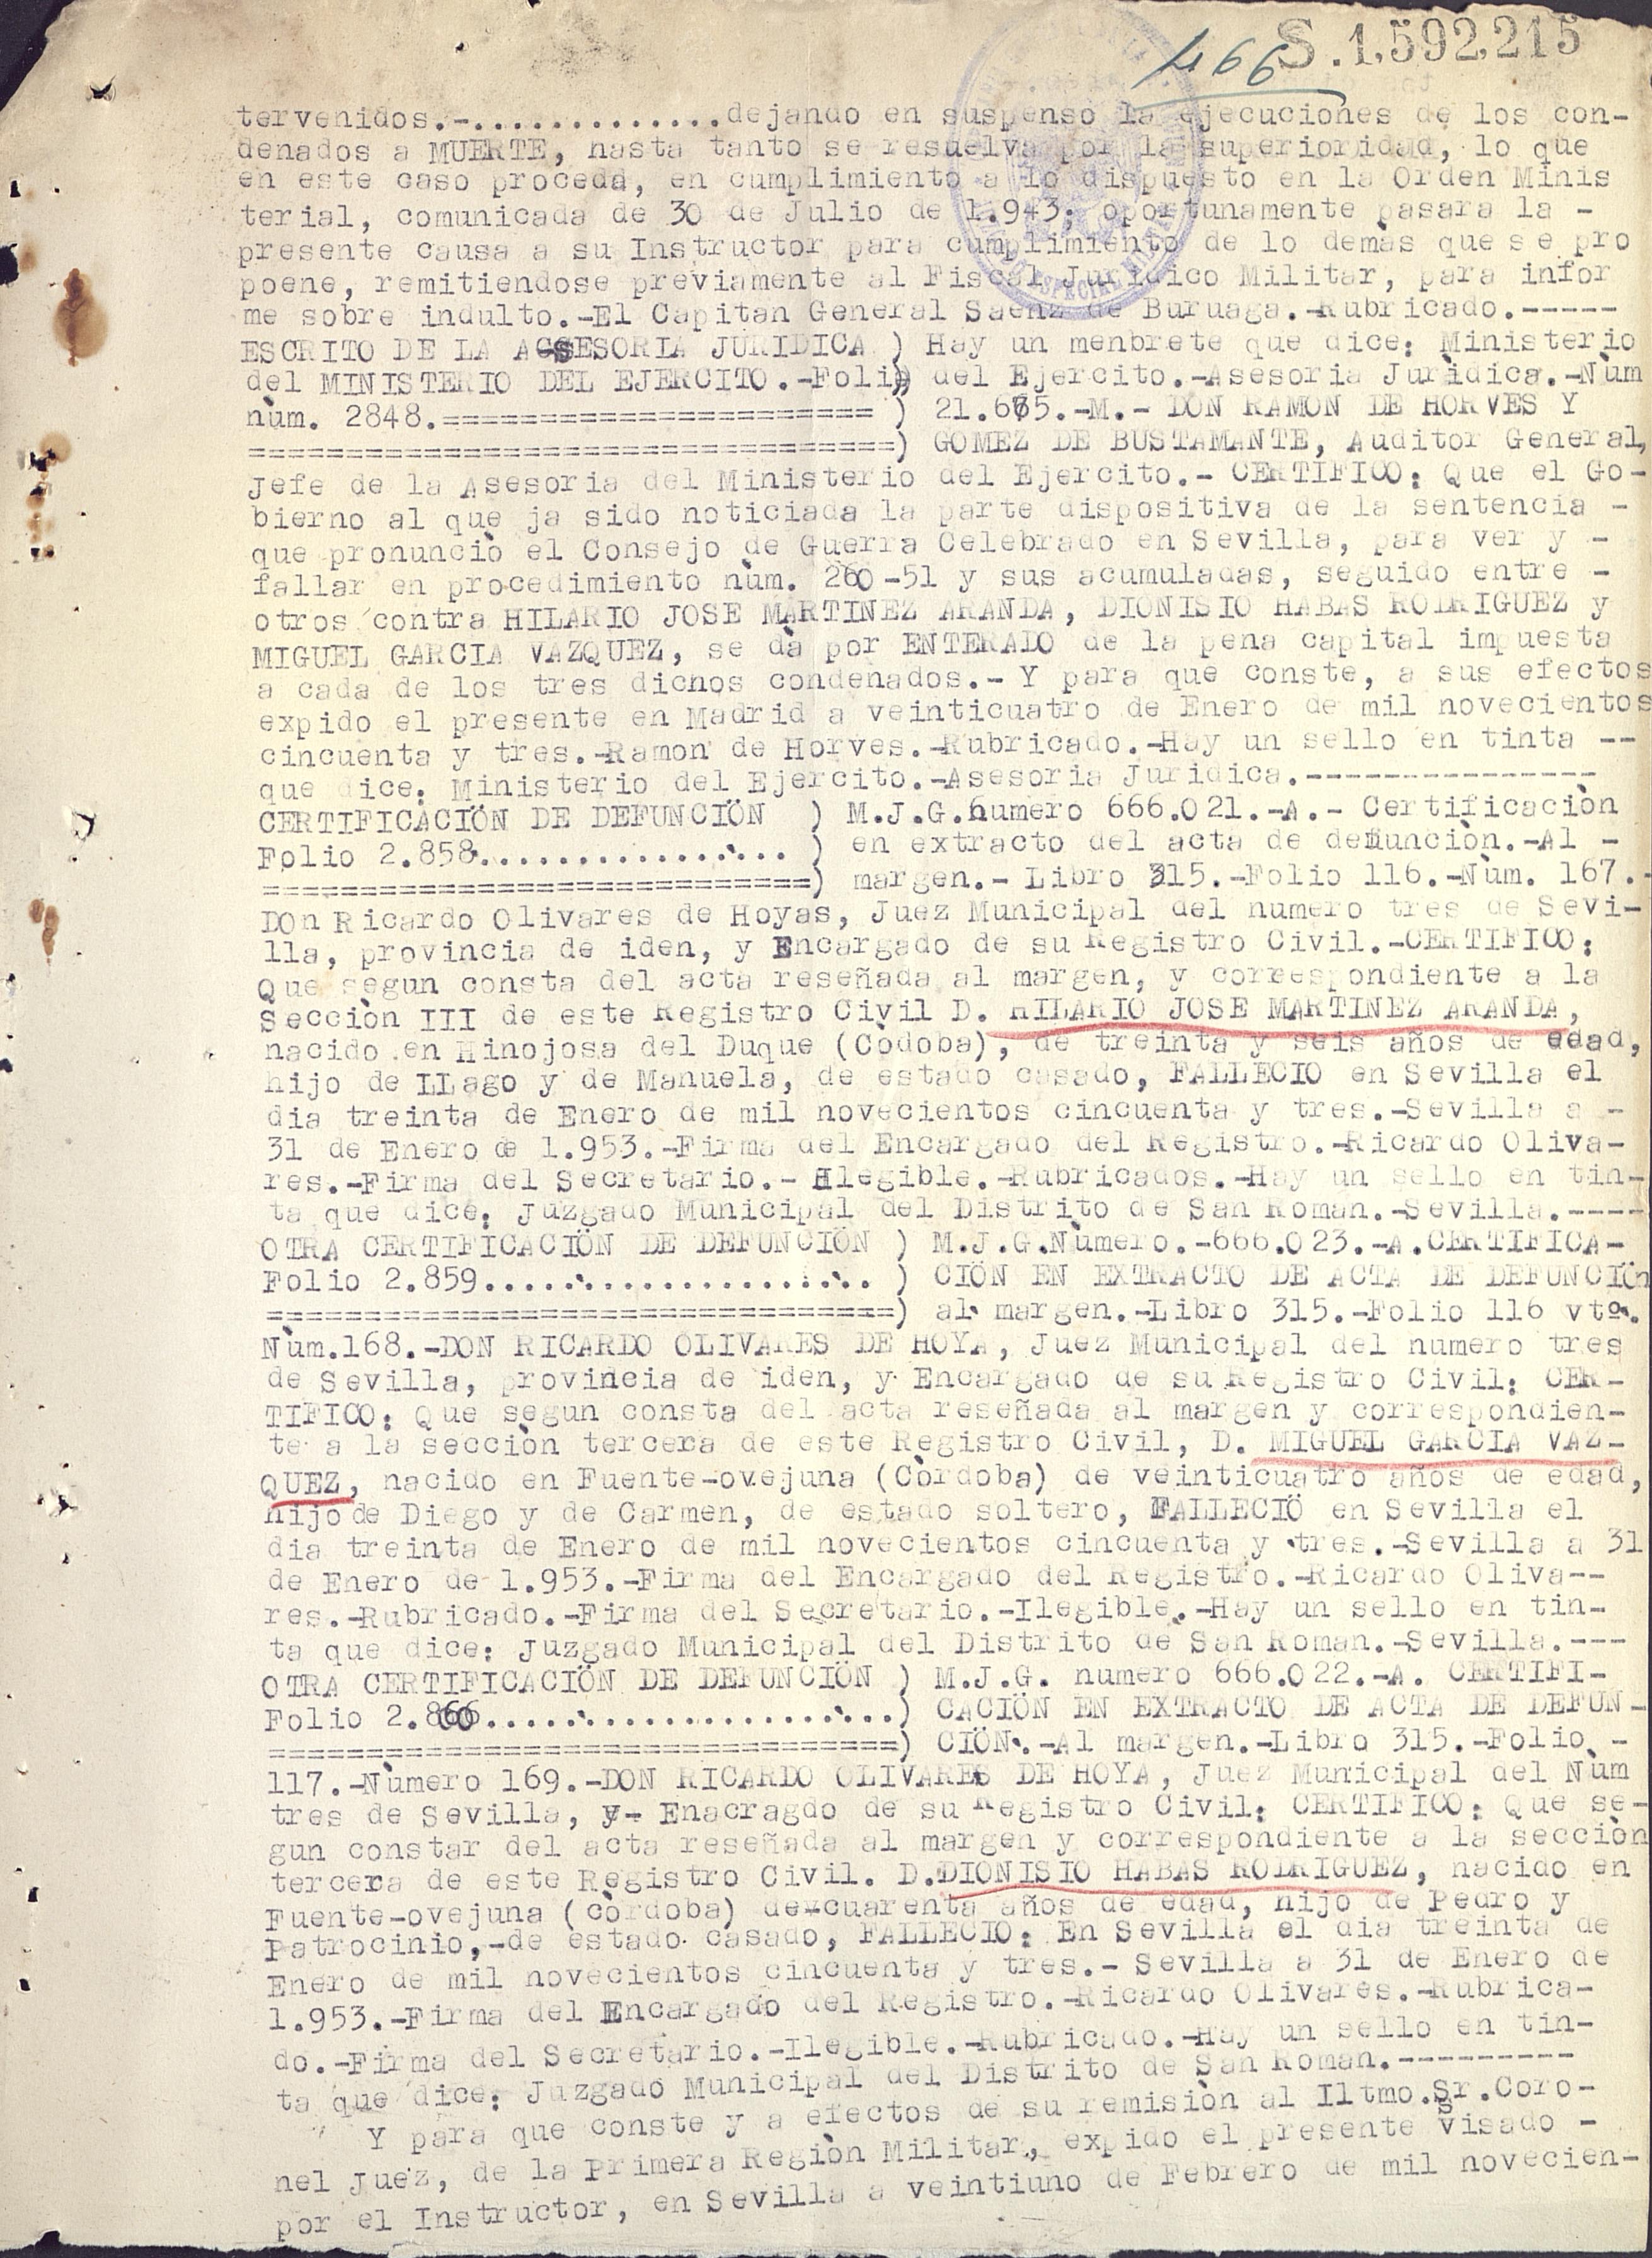 466 S.1,592,215
tervenidos.-..............dejando en suspenso la ejecuciones de los con-
denados a MUERTE, hasta tanto se resuelva por la superioridad, lo que
en este caso proceda, en cumplimiento a lo dispuesto en la Orden Minis
terial, comunicada de 30 de Julio de 1.943; oportunamente pasara la -
presente causa a su Instructor para cumplimiento de lo demàs que se pro
poene, remitiendose previamente al Fiscal Juridico Militar, para infor
me sobre indulto.-El Capitan General Saenz de Buruaga.-Rubricado.-----
ESCRITO DE LA ASESORIA JURIDICA ) Hay un menbrete que dice: Ministerio
del MINISTERIO DEL EJERCITO.-Folio) del Ejercito.-Asesoria Juridica.-Nùm
nùm. 2848.====================== ) 21.675.-M.- DON RAMON DE HORVES Y
=================================) GOMEZ DE BUSTAMANTE, Auditor General,
Jefe de la Asesoria del Ministerio del Ejercito.- CERTIFICO: Que el Go-
bierno al que ja sido noticiada la parte dispositiva de la sentencia -
que pronunciò el Consejo de Guerra Celebrado en Sevilla, para ver y -
fallar en procedimiento nùm. 260-51 y sus acumuladas, seguido entre -
otros contra HILARIO JOSE MARTINEZ ARANDA, DIONISIO HABAS RODRIGUEZ y
MIGUEL GARCIA VAZQUEZ, se dà por ENTERADO de la pena capital impuesta
a cada de los tres dichos condenados.- Y para que conste, a sus efectos
expido el presente en Madrid a veinticuatro de Enero de mil novecientos
cincuenta y tres.-Ramon de Horves.-Rubricado.-Hay un sello en tinta --
que dice: Ministerio del Ejercito.-Asesoria Juridica.---------------
CERTIFICACIÖN DE DEFUNCIÖN ) M.J.G.numero 666.021.-A.- Certificaciòn
Folio 2.858................... ) en extracto del acta de defunciòn.-Al -
============================) margen.- Libro 315.-Folio 116.-Nùm. 167.-
DOn Ricardo Olivares de Hoyas, Juez Municipal del numero tres de Sevi-
lla, provincia de iden, y Encargado de su Registro Civil.-CERTIFICO:
Que segun consta del acta reseñada al margen, y correspondiente a la
Secciòn III de este Registro Civil D. HILARIO JOSE MARTINEZ ARANDA,
nacido en Hinojosa del Duque (Còdoba), de treinta y seis años de edad,
hijo de LLago y de Manuela, de estado casado, FALLECIO en Sevilla el
dia treinta de Enero de mil novecientos cincuenta y tres.-Sevilla a -
31 de Enero de 1.953.-Firma del Encargado del Registro.-Ricardo Oliva-
res.-Firma del Secretario.- Ilegible.-Rubricados.-Hay un sello en tin-
ta que dice: Juzgado Municipal del Distrito de San Roman.-Sevilla.----
OTRA CERTIFICACIÖN DE DEFUNCIÖN ) M.J.G.Nùmero.-666.023.-A.CERTIFICA-
Folio 2.859........................ ) CIÖN EN EXTRACTO DE ACTA DE DEFUNCIÖn
================================) al margen.-Libro 315.-Folio 116 vtº.
Nùm.168.-DON RICARDO OLIVARES DE HOYA, Juez Municipal del numero tres
de Sevilla, provincia de iden, y Encargado de su Registro Civil: CER-
TIFICO: Que segun consta del acta reseñada al margen y correspondien-
te a la secciòn tercera de este Registro Civil, D. MIGUEL GARCIA VAZ-
QUEZ, nacido en Fuente-ovejuna (Còrdoba) de veinticuatro años de edad,
hijo de Diego y de Carmen, de estado soltero, FALLECIÖ en Sevilla el
dia treinta de Enero de mil novecientos cincuenta y tres.-Sevilla a 31
de Enero de 1.953.-Firma del Encargado del Registro.-Ricardo Oliva--
res.-Rubricado.-Firma del Secretario.-Ilegible.-Hay un sello en tin-
ta que dice: Juzgado Municipal del Distrito de San Roman.-Sevilla.---
OTRA CERTIFICACIÖN DE DEFUNCIÖN ) M.J.G. numero 666.022.-A. CERTIFI-
Folio 2.860.........................) CACIÖN EN EXTRACTO DE ACTA DE DEFUN-
================================) CIÖN.-Al margen.-Libro 315.-Folio -
117.-Nùmero 169.-DON RICARDO OLIVARES DE HOYA, Juez Municipal del Nùm
tres de Sevilla, y- Enacragdo de su Registro Civil: CERTIFICO: Que se-
gun constar del acta reseñada al margen y correspondiente a la secciòn
tercera de este Registro Civil. D.DIONISIO HABAS RODRIGUEZ, nacido en
Fuente-ovejuna (còrdoba) de cuarenta años de edad, hijo de Pedro y
Patrocinio,-de estado casado, FALLECIO: En Sevilla el dia treinta de
Enero de mil novecientos cincuenta y tres.- Sevilla a 31 de Enero de
1.953.-Firma del Encargado del Registro.-Ricardo Olivares.-Rubrica-
do.-Firma del Secretario.-Ilegible.-Rubricado.-Hay un sello en tin-
ta que dice: Juzgado Municipal del Distrito de San Roman.---------
Y para que conste y a efectos de su remisiòn al Iltmo.Sr.Coro-
nel Juez, de la Primera Regiòn Militar, expido el presente visado -
por el Instructor, en Sevilla a veintiuno de Febrero de mil novecien-